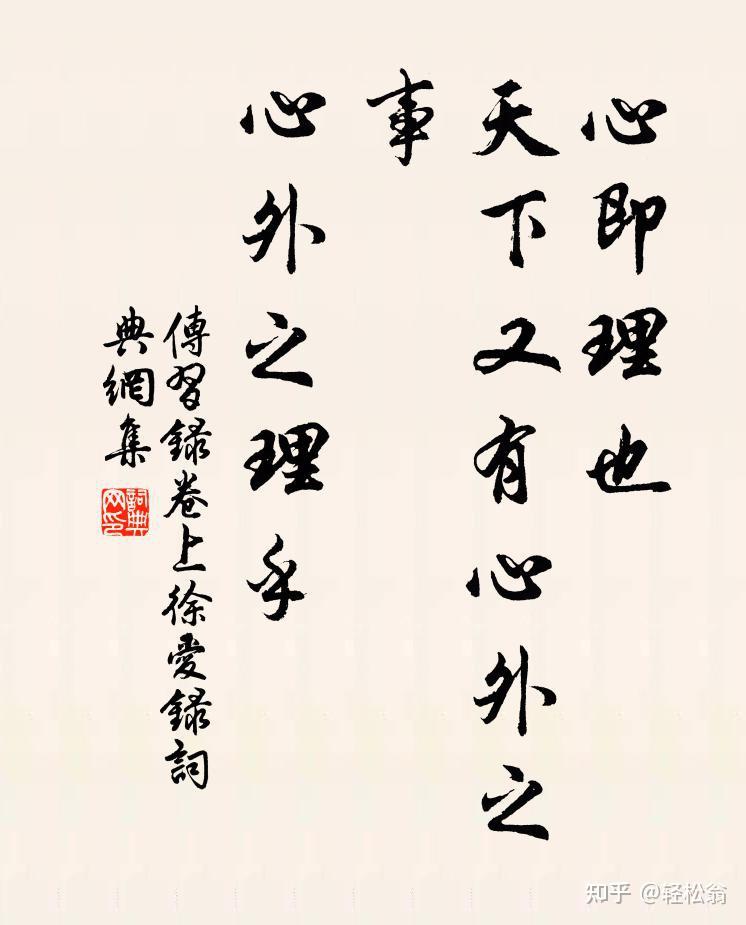 心即理也
天下又有心外之
事
心外之理乎
傳習録卷上徐愛録詞
典網集
詞典
网印
知乎 @轻松翁